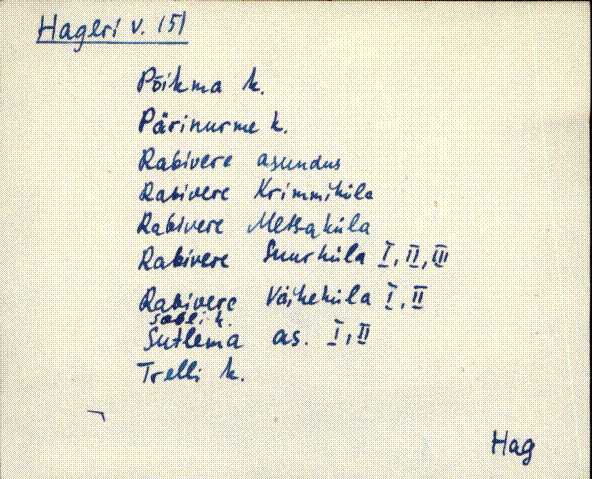 Hageri v. 151
Põikma k.
Pärinurme k.
Rabivere asundus
Rabivere Krimmiküla
Rabivere Metsaküla
Rabivere Suurküla I, II, III
Rabivere Väikeküla I, II
Sooli k.
Sutlema as. I, II
Trelli k.
Hag